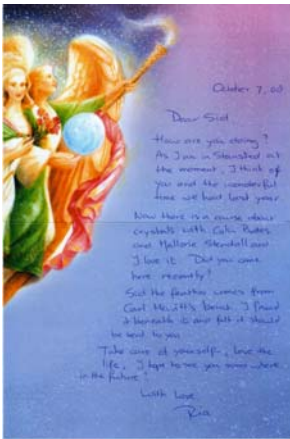 October 7, 00
Dear Sid,
How are you doing?
As I am in Stansted at
the moment, I think of
you and the wonderful
time we had last year
Now there is a course about
crystals with Colin
and Mallorie Stendall and
I love it. Did you come
here recently?
Sid the feather comes from
bench I found
it beneath it and felt it should
be sent to you
Take care of yourself, love the
life, I hope to see you some where
in the future!
With Love